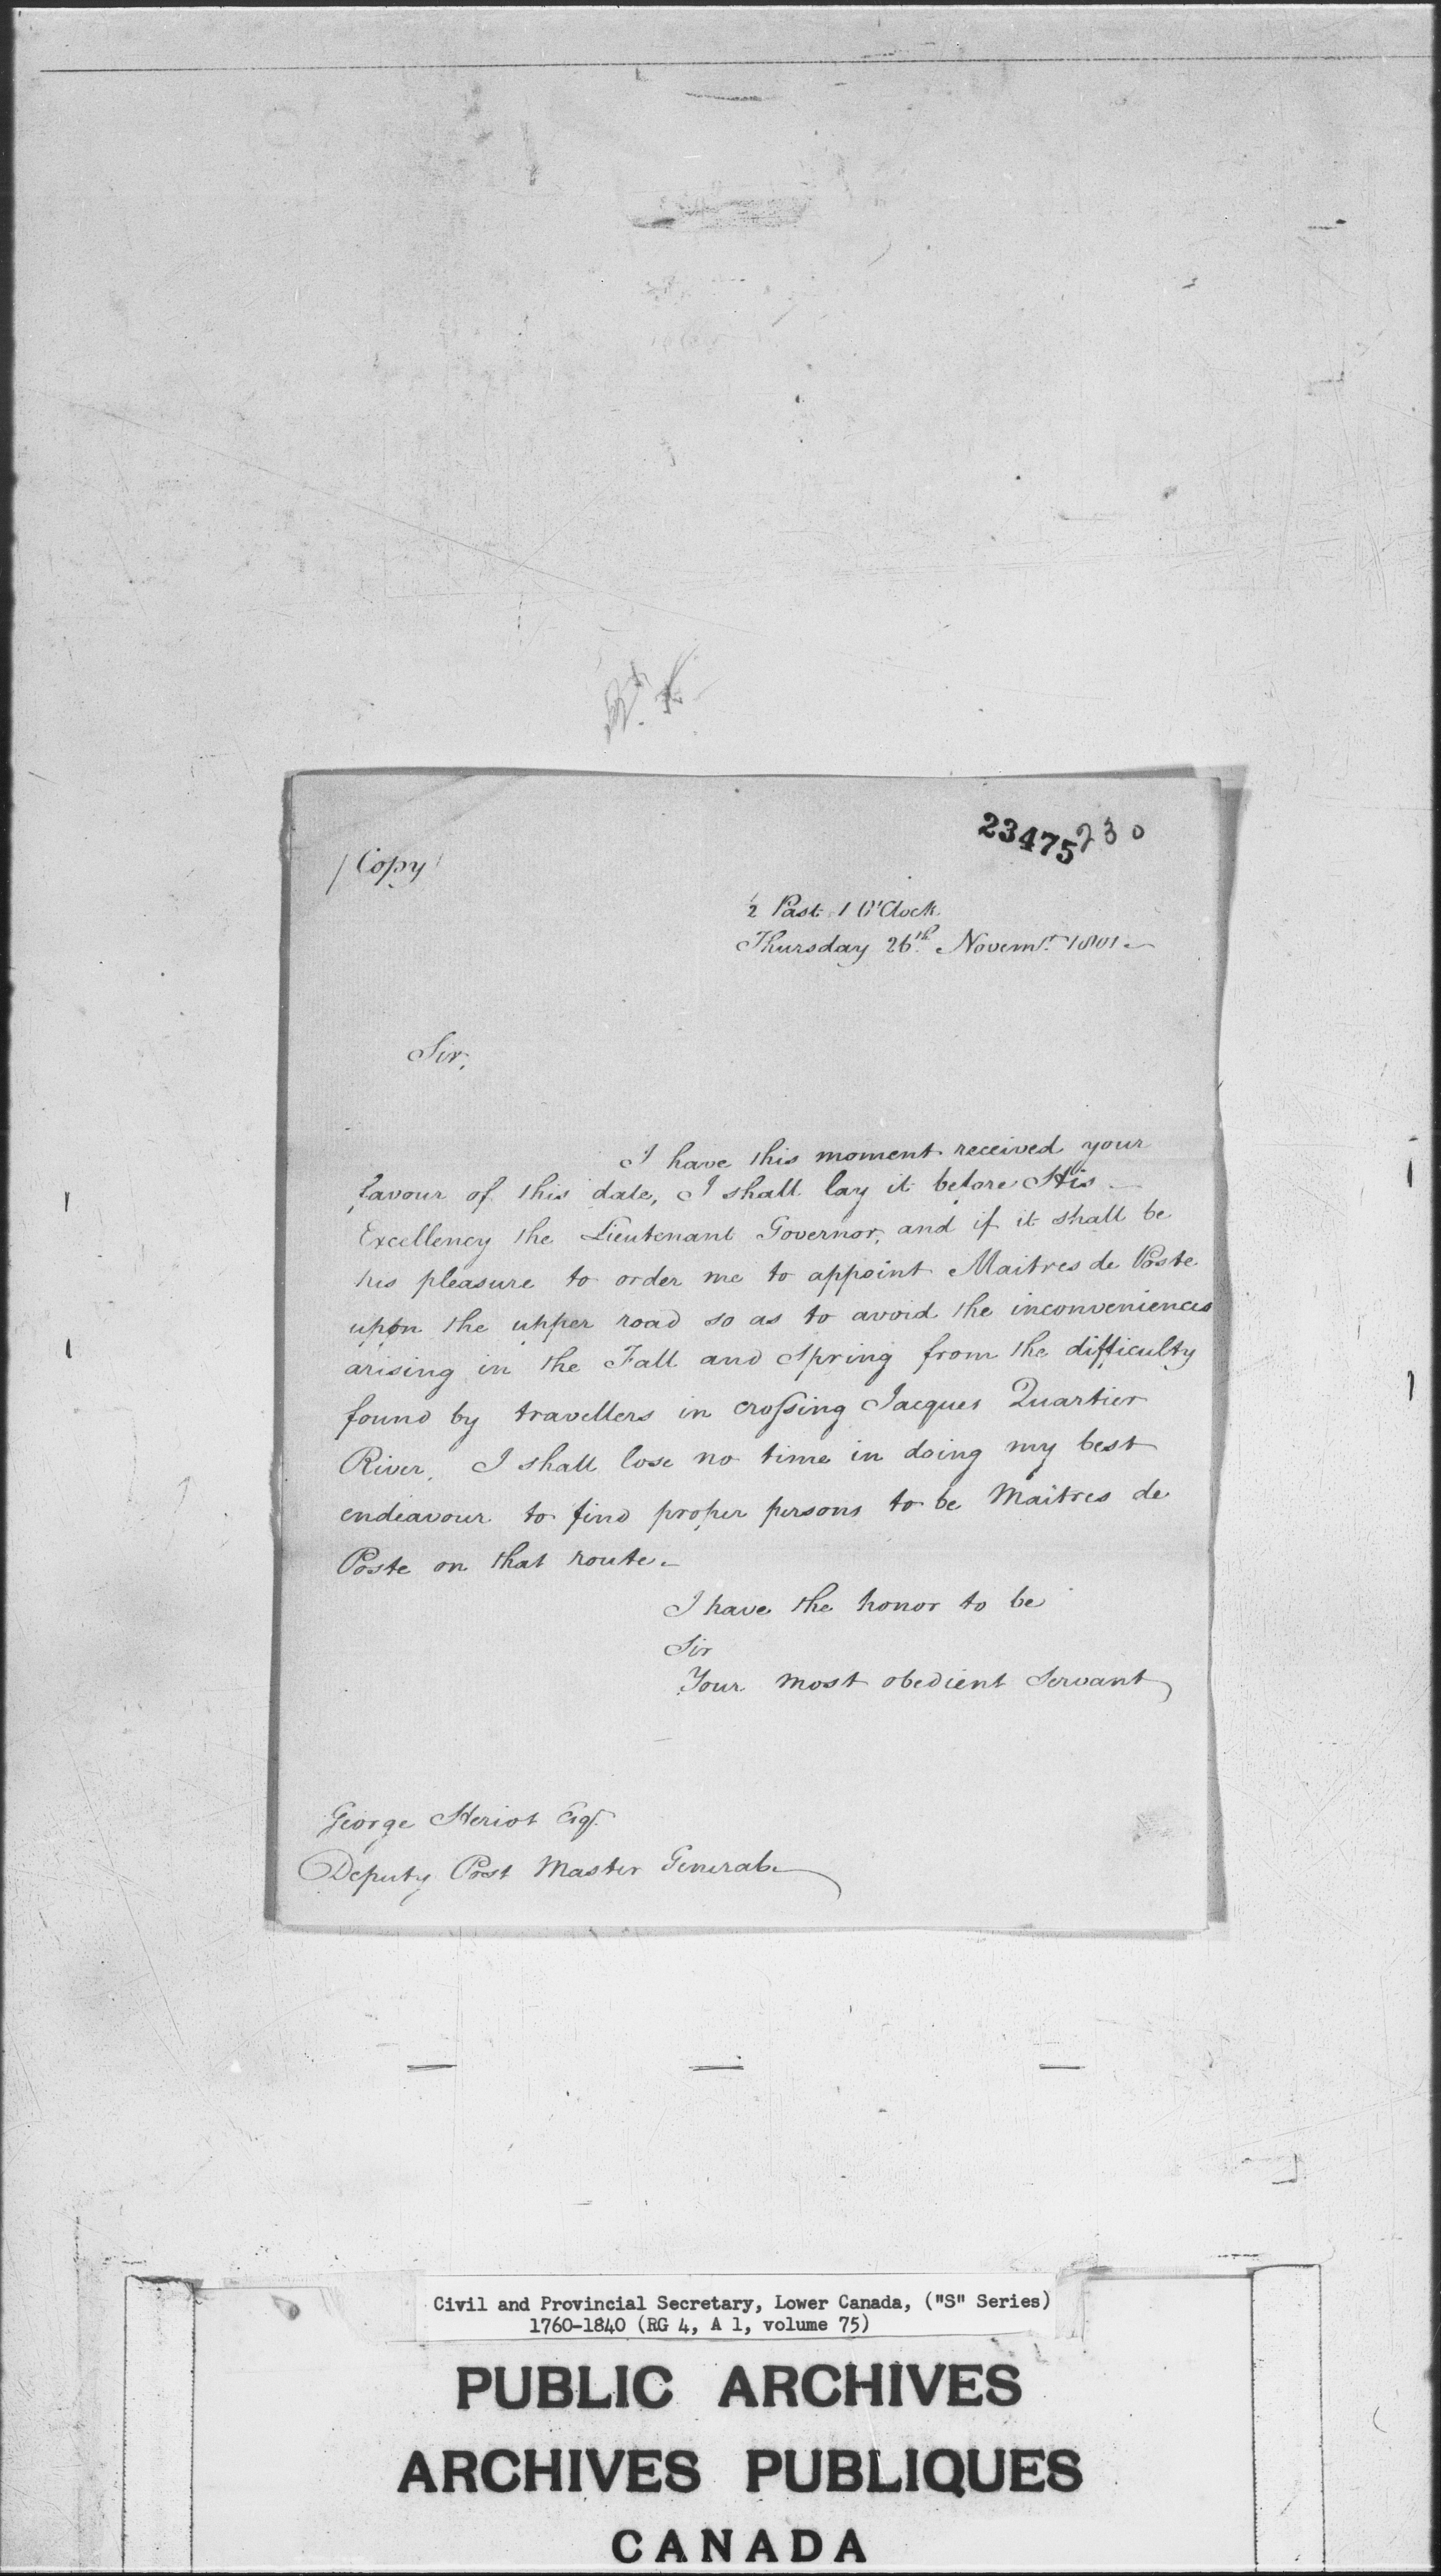 23475 230
/Copy/
½ Past 1 O'Clock
Thursday 26th. Novemr. 1801
Sir,
I have this moment received your
favour of this date, I shall lay it before His
Excellency the Lieutenant Governor, and if it shall be
his pleasure to order me to appoint Maitres de Poste
upon the upper road so as to avoid the inconveniences
arising in the Fall and Spring from the difficulty
found by travellers in crossing Jacques Quartier
River, I shall lose no time in doing my best
endeavour to find proper persons to be Maitres de
Poste on that route.
I have the honor to be
Sir
Your most obedient Servant
George Heriot Esqr.
Deputy Post Master General
Civil and Provincial Secretary, Lower Canada, ("S" Series)
1760-1840 (RG 4, A 1, volume 75)
PUBLIC ARCHIVES
ARCHIVES PUBLIQUES
CANADA